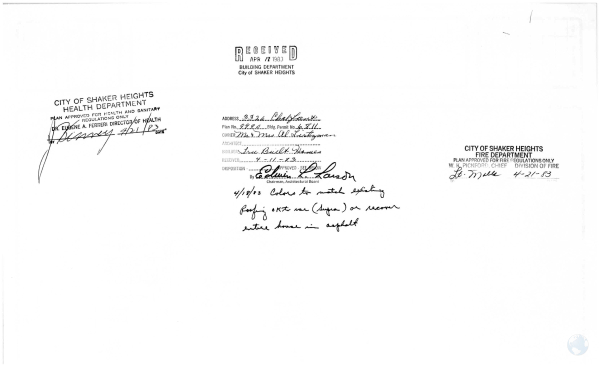 RECEIVED
APR 12 1983
BUILDING DEPARTMENT
City of SHAKER HEIGHTS
CITY OF SHAKER HEIGHTS
HEALTH DEPARTMENT
PLAN APPROVED FOR HEALTH AND SANITARY
REGULATIONS ONLY
DR. EUGENE A. FERRERI DIRECTOR OF HEALTH
4/21/83
ADDRESS 3320
Plan No. Bldg. Permit No.
OWNER Mr & Mrs Al
ARCHITECT
Tru Built Homes
RECEIVED 4-11-83
DISPOSITION
By Edwin L. Larson
Chairman, Architectural Board
4/18/83 Colors to match existing
Roofing OK to use () or recover
entire house in asphalt
CITY OF SHAKER HEIGHTS
FIRE DEPARTMENT
PLAN APPROVED FOR FIRE REGULATIONS ONLY
CHIEF DIVISION OF FIRE
4-21-83